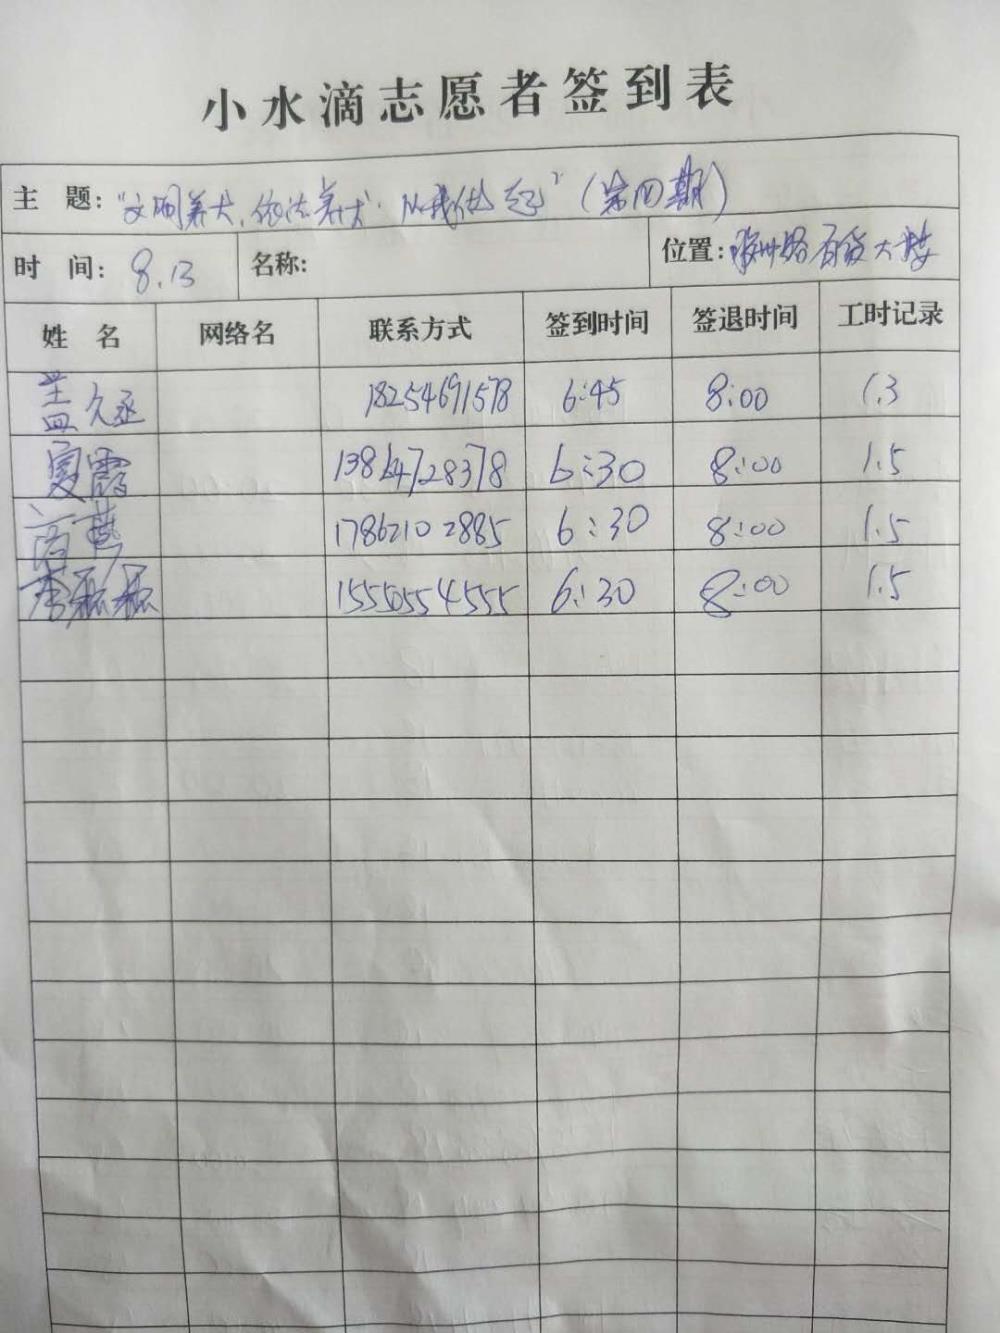 小水滴志愿者签到表
主 题: "文明养犬、依法养犬、从我做起"(第四期)
时 间: 8.13 名称: 位置: 路百货大楼
姓 名 网络名 联系方式 签到时间 签退时间 工时记录
盖久丞 18254691578 6:45 8:00 1.3
夏霞 13864728378 6:30 8:00 1.5
17862102885 6:30 8:00 1.5
李 15550554555 6:30 8:00 1.5